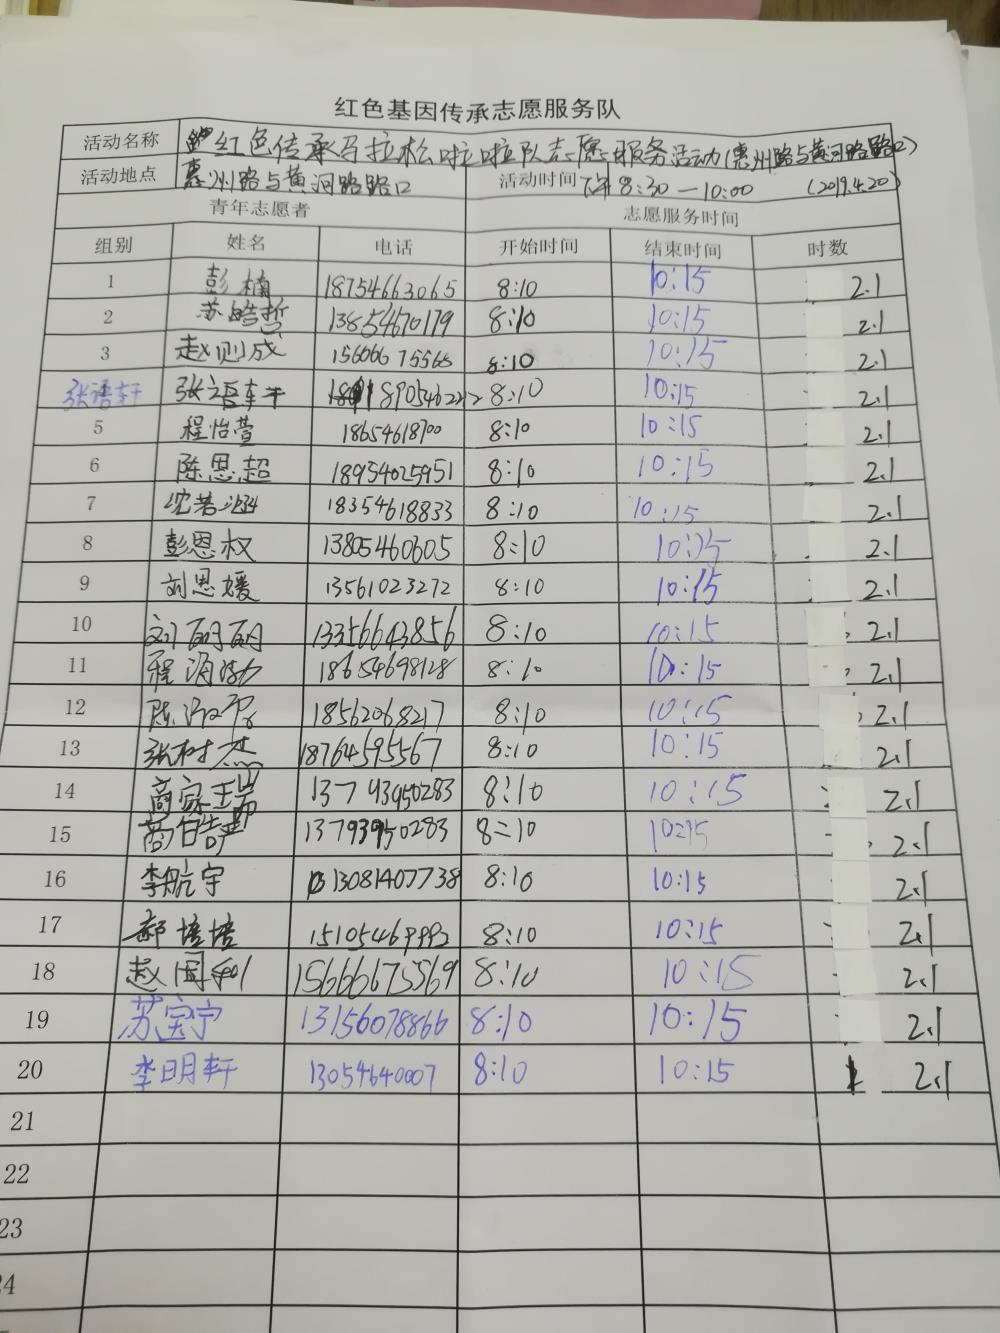 红色基因传承志愿服务队
活动名称 红色传承马拉松啦啦队志愿服务活动(惠州路与黄河路路口)
活动地点 惠州路与黄河路路口 活动时间 下午8:30—10:00 (2019.4.20)
青年志愿者 志愿服务时间
组别 姓名 电话 开始时间 结束时间 时数
1 彭楠 18754663065 8:10 10:15 2.1
2 苏皓哲 13854670179 8:10 10:15 2.1
3 赵则成 15606675566 8:10 10:15 2.1
张语轩 张语轩 8:10 10:15 2.1
5 程怡萱 18654618700 8:10 10:15 2.1
6 陈思超 18954025951 8:10 10:15 2.1
7 沈若涵 18354618833 8:10 10:15 2.1
8 彭恩权 13805460605 8:10 10:15 2.1
9 刘恩媛 13561023272 8:10 10:15 2.1
10 13356643856 8:10 10:15 2.1
11 程润 18654698128 8:10 10:15 2.1
12 陈 18562068217 8:10 10:15 2.1
13 张树杰 18764595567 8:10 10:15 2.1
14 商家瑞 13793950283 8:10 10:15 2.1
15 13793950283 8:10 10:15 2.1
16 李航宇 13081407738 8:10 10:15 2.1
17 郝培培 15105469992 8:10 10:15 2.1
18 赵国利 15666675569 8:10 10:15 2.1
19 苏宝宁 13156078866 8:10 10:15 2.1
20 李明轩 13054640007 8:10 10:15 2.1
21
22
23
24